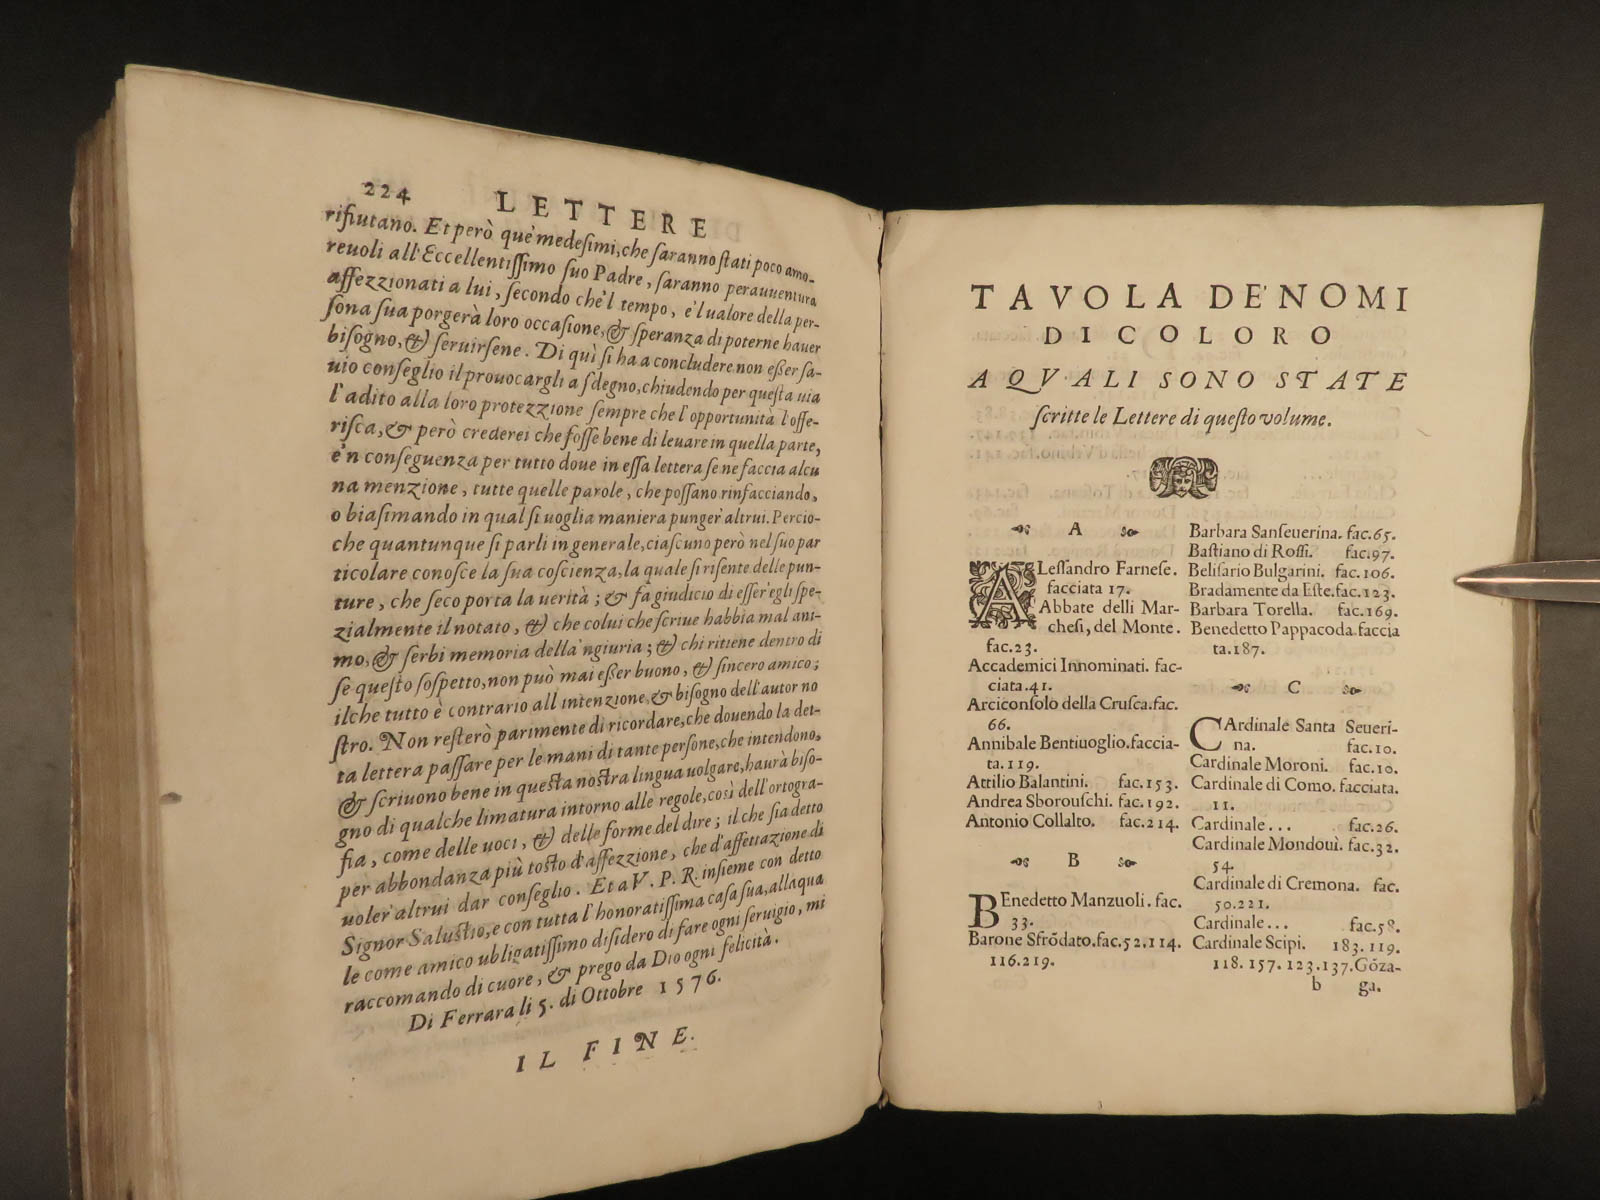 224 LETTERE
rifiutano. Et però que'medesimi, che saranno stati poco amo-
reuoli all'Eccellentissimo suo Padre, saranno perauuentura
affezzionati a lui, secondo che'l tempo, e'l ualore della per-
sona sua porgerà loro occasione, & speranza di poterne hauer
bisogno, & seruirsene. Di quì si ha a concludere non esser sa-
uio conseglio il prouocargli a sdegno, chiudendo per questa uia
l'adito alla loro protezzione sempre che l'opportunità l'offe-
risca, & però crederei che fosse bene di leuare in quella parte,
e'n conseguenza per tutto doue in essa lettera se ne faccia alcu
na menzione, tutte quelle parole, che possano rinfacciando,
o biasimando in qual si uoglia maniera punger'altrui. Percio-
che quantunque si parli in generale, ciascuno però nel suo par
ticolare conosce la sua coscienza, la quale si risente delle pun-
ture, che seco porta la uerità; & fa giudicio di esser'egli spe-
zialmente il notato, & che colui che scriue habbia mal ani-
mo, & serbi memoria della'ngiuria; & chi ritiene dentro di
se questo sospetto, non può mai esser buono, & sincero amico;
ilche tutto è contrario all'intenzione, & bisogno dell'autor no
stro. Non resterò parimente di ricordare, che douendo la det-
ta lettera passare per le mani di tante persone, che intendono,
& scriuono bene in questa nostra lingua uolgare, haurà biso-
gno di qualche limatura intorno alle regole, così dell'ortogra-
fia, come delle uoci, & delle forme del dire; il che sia detto
per abbondanza più tosto d'affezzione, che d'affettazione di
uoler'altrui dar conseglio. Et a V. P. R. insieme con detto
Signor Salustio, e con tutta l'honoratissima casa sua, alla qua
le come amico ubligatissimo disidero di fare ogni seruigio, mi
raccomando di cuore, & prego da Dio ogni felicità.
Di Ferrara li 5. di Ottobre 1576.
IL FINE.
TAVOLA DE'NOMI
DI COLORO
A QVALI SONO STATE
scritte le Lettere di questo volume.
A
ALessandro Farnese.
facciata 17.
Abbate delli Mar-
chesi, del Monte.
fac.23.
Accademici Innominati. fac-
ciata.41.
Arciconsolo della Crusca.fac.
66.
Annibale Bentiuoglio.faccia-
ta.119.
Attilio Balantini. fac.153.
Andrea Sborouschi. fac.192.
Antonio Collalto. fac.214.
B
BEnedetto Manzuoli. fac.
33.
Barone Sfrōdato.fac.52.114.
116.219.
Barbara Sanseuerina. fac.65.
Bastiano di Rossi. fac.97.
Belisario Bulgarini. fac.106.
Bradamente da Este.fac.123.
Barbara Torella. fac.169.
Benedetto Pappacoda.faccia
ta.187.
C
CArdinale Santa Seueri-
na. fac.10.
Cardinale Moroni. fac.10.
Cardinale di Como. facciata.
11.
Cardinale... fac.26.
Cardinale Mondoui. fac.32.
54.
Cardinale di Cremona. fac.
50.221.
Cardinale... fac.58.
Cardinale Scipi. 183.119.
118.157.123.137.Gōza-
b ga.